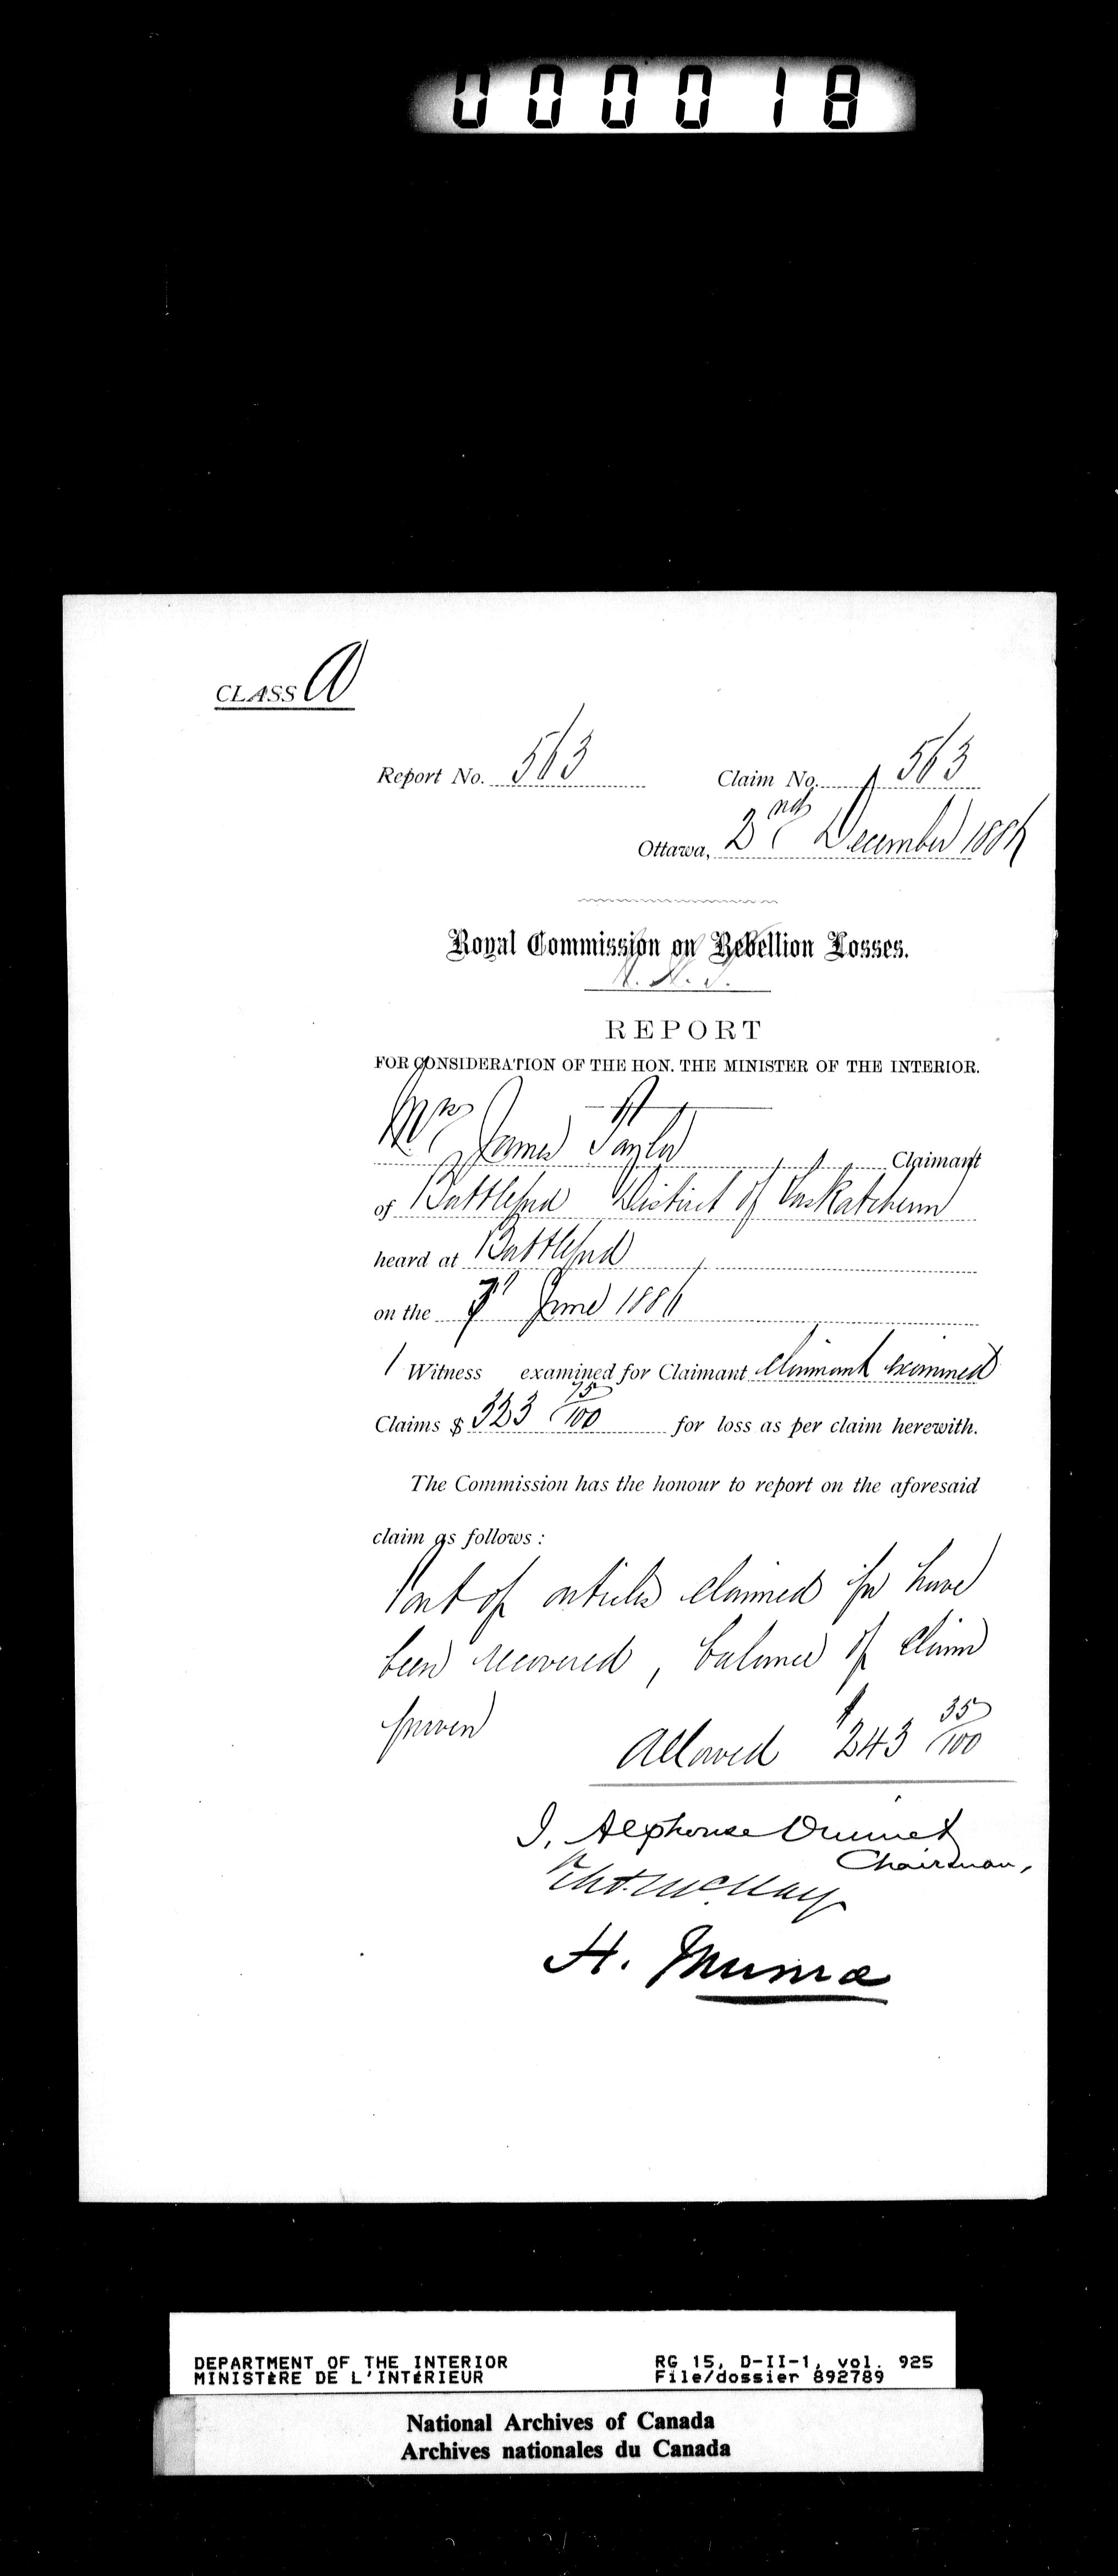 000018
CLASS A
Report No. 563 Claim No. 563
Ottawa, 2nd December 1886
Royal Commission on Rebellion Losses.
REPORT
FOR CONSIDERATION OF THE HON. THE MINISTER OF THE INTERIOR.
Mrs James Taylor Claimant
of Battleford District of Saskatchewan
heard at Battleford
on the 7" June 1886
1 Witness examined for Claimant claimant examined
Claims $ 323 75/100 for loss as per claim herewith.
The Commission has the honour to report on the aforesaid
claim as follows :
Part of articles claimed for have
been recovered, balance of claim
proven
Allowed $243 35/100
J. Alphonse Ouimet
Chairman,
H. Muma
DEPARTMENT OF THE INTERIOR RG 15, D-II-1, vol. 925
MINISTÈRE DE L'INTÉRIEUR File/dossier 892789
National Archives of Canada
Archives nationales du Canada